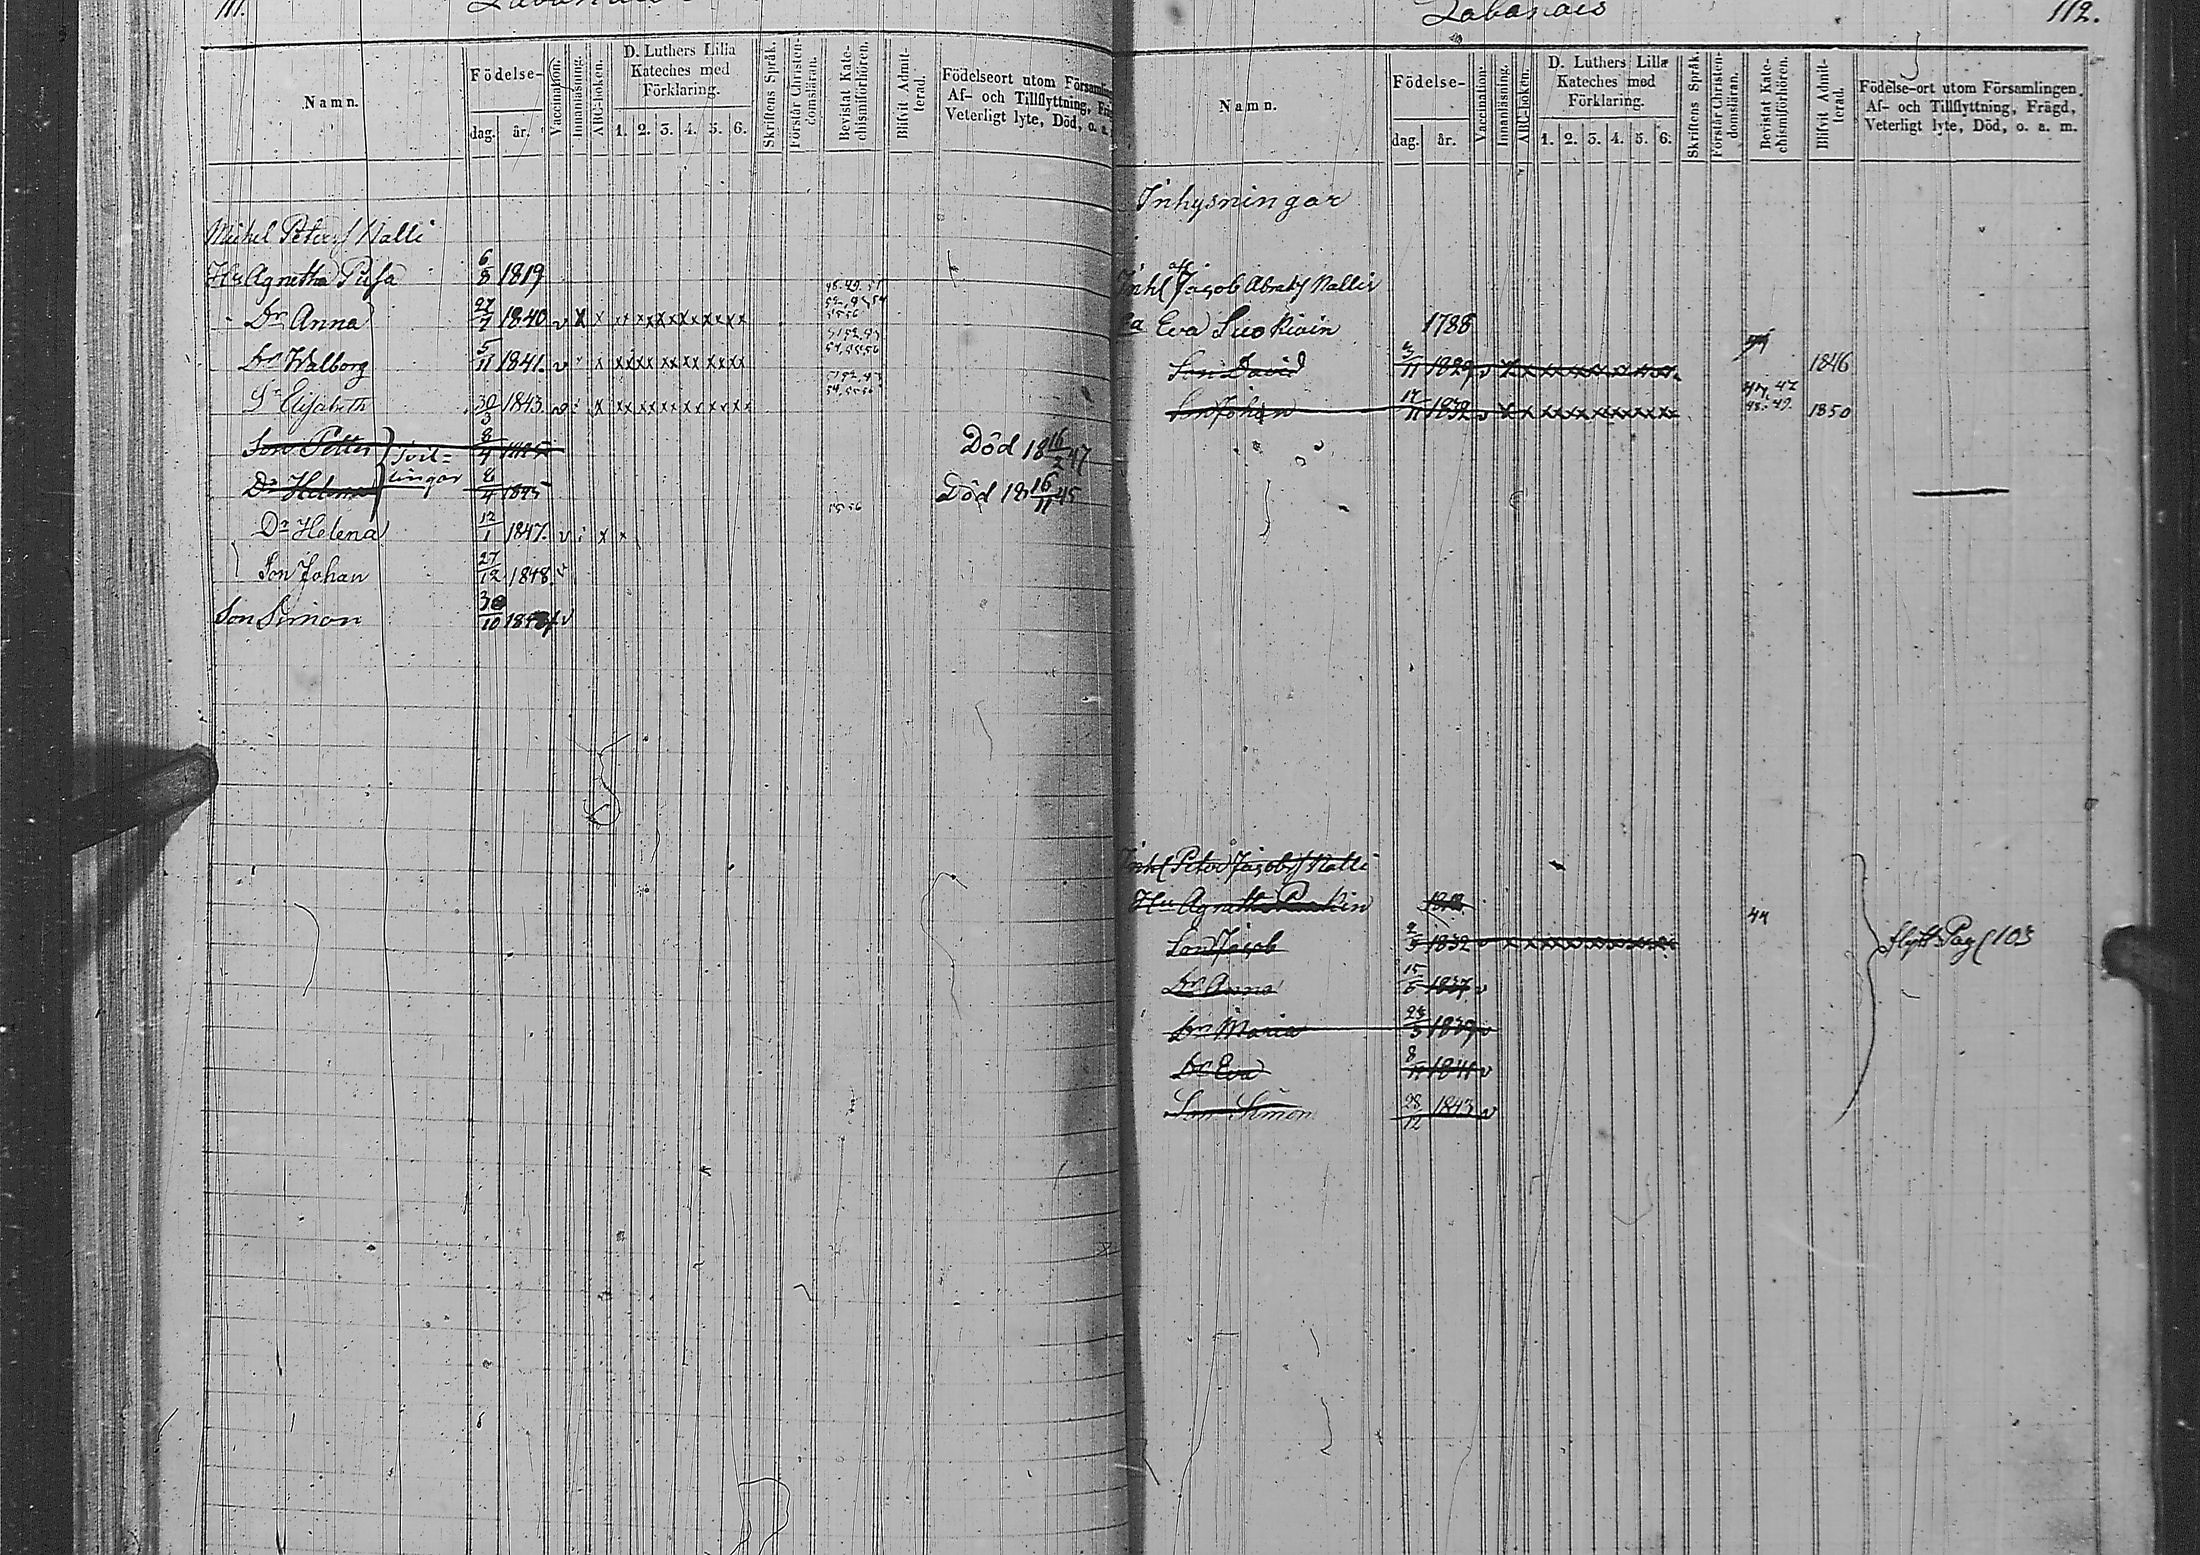 111.
Namn.
Födelse-
dag. år.
Vaccination.
Innanläsning.
ABC-boken.
D. Luthers Lilla
Kateches med
Förklaring.
1. 2. 3. 4. 5. 6.
Skriftens Språk.
Förstår Christen-
domsläran.
Bevistat Kate-
chismiförhören.
Blifvit Admit-
terad.
Födelseort utom Församling
Af- och Tillflyttning,
Veterligt lyte, Död, o. a.
Michel Peters Nalli
Hu Agnetha Pusa 6/8 1819
48. 49. 51
Dr Anna 27/7 1840 v x x x x x x x x x x x x
55 56
51 52. 53
54. 55 56
Dr Walborg 5/11 1841. v x x x x x x x x x x x
54. 55 56
Dr Elisabeth 30/3 1843 v x x x x x x x x x x x
Son Petter 8/4 1845 Död 18 16/2 47
Tvil=
lingar
Dr Helena 8/4 1845 Död 18 16/11 45
55 56
Dr Helena 12/1 1847. v i x x
Son Johan 27/12 1848. v
Son Simon 30/10 v
Labanais
112.
Namn.
Födelse-
dag. år.
Vaccination.
Innanläsning.
ABC-boken.
D. Luthers Lillæ
Kateches med
Förklaring.
1. 2. 3. 4. 5. 6.
Skriftens Språk.
Förstår Christen-
domsläran.
Bevistat Kate-
chismiförhören.
Blifvit Admit-
terad.
Födelse-ort utom Församlingen.
Af- och Tillflyttning, Frägd,
Veterligt lyte, Död, o. a. m.
Inhysningar
Inhs Jacob Abrahs Nallis
Eva Suokivin 1788
Son David 3/11 1829 v x x x x x x x x x x 1846
47. 47
48. 49.
Son Johan 14/11 1832 v x x x x x x x x x x 1850
Inhs Peter Jacobs Nalli
Hu Agnetha
44
Son Jacob 1832 v x x x x x x x x x x
flytt Pag 103
Dr Anna 15/6 1837 v
Dr Maria 1839 v
Dr Eva 1841 v
Son Simon 28/12 1843 v